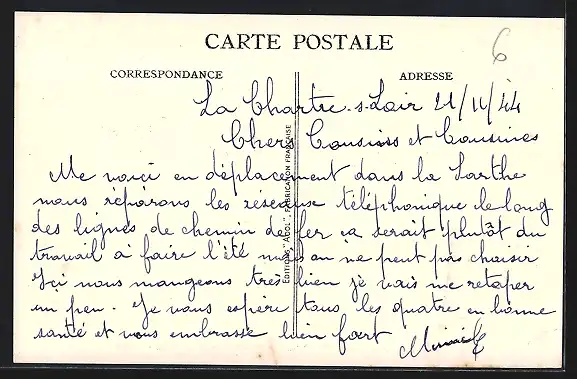 CARTE POSTALE
6
CORRESPONDANCE
ADRESSE
La Chartre-s-Loir 21/11/44
Chers Cousins et Cousines
Me voici en déplacement dans la Sarthe
nous réparons les réseaux téléphonique le long
des lignes de chemin de fer ça serait plutôt du
travail à faire l'été mais on ne peut pas choisir
Ici nous mangeons très bien je vais me retaper
un peu. Je vous espère tous les quatre en bonne
santé et vous embrasse bien fort
EDITIONS "ADOL". FABRICATION FRANCAISE